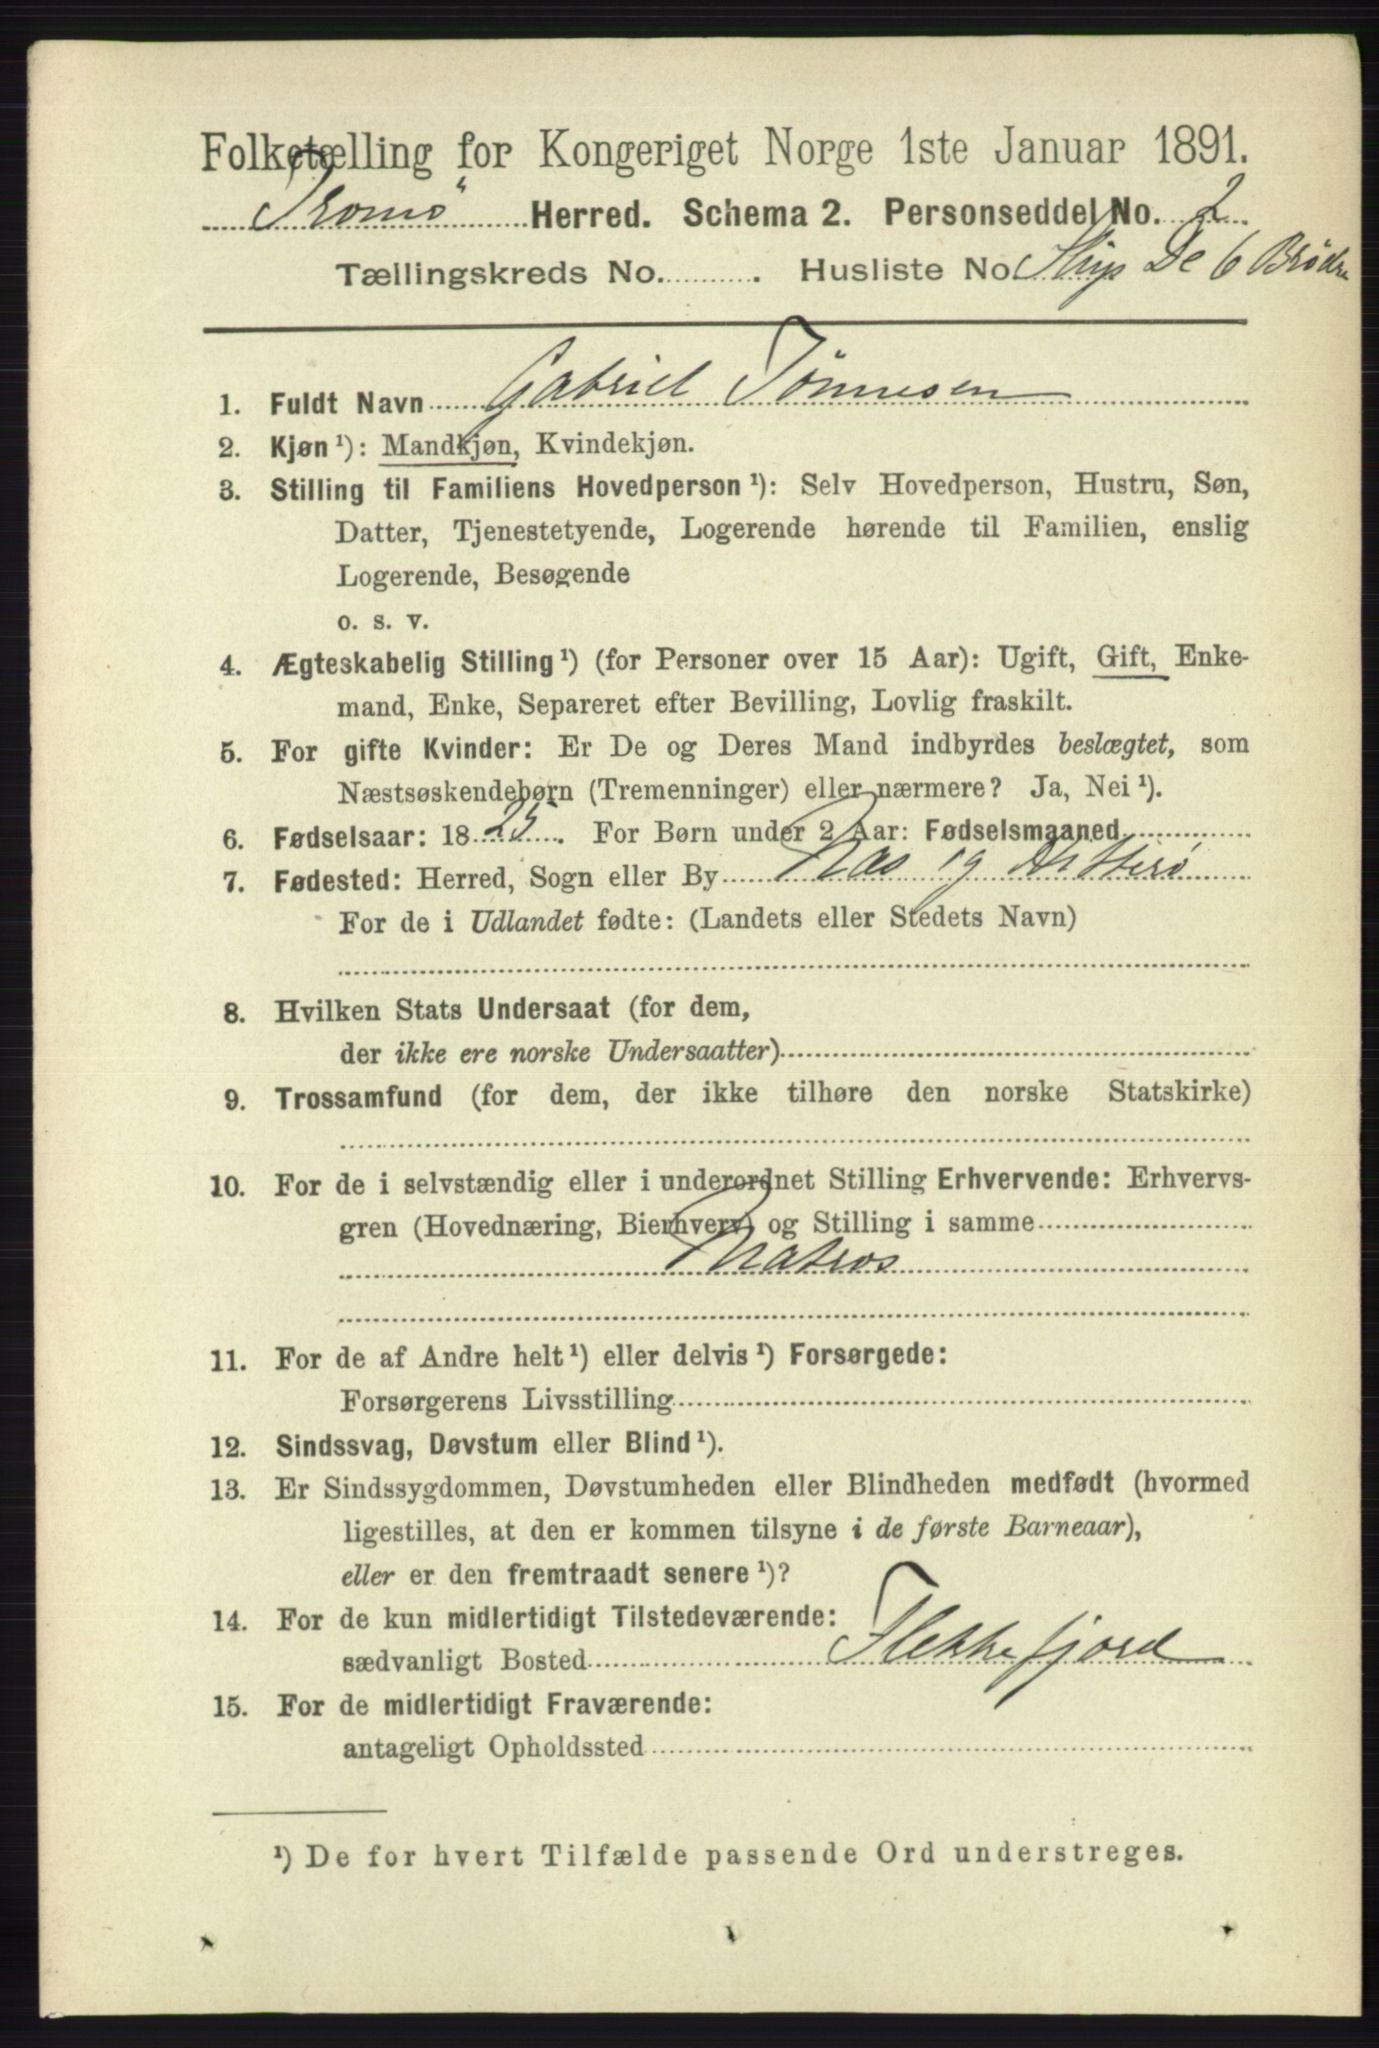 Folketælling for Kongeriget Norge 1ste Januar 1891.
Tromö Herred. Schema 2. Personseddel No. 2
Tællingskreds No. . Husliste No. Skip De 6 Brödre
1. Fuldt Navn Gabriel Tönnesen
2. Kjøn ¹): Mandkjøn, Kvindekjøn.
3. Stilling til Familiens Hovedperson ¹): Selv Hovedperson, Hustru, Søn,
Datter, Tjenestetyende, Logerende hørende til Familien, enslig
Logerende, Besøgende
o. s. v.
4. Ægteskabelig Stilling ¹) (for Personer over 15 Aar): Ugift, Gift, Enke-
mand, Enke, Separeret efter Bevilling, Lovlig fraskilt.
5. For gifte Kvinder: Er De og Deres Mand indbyrdes beslægtet, som
Næstsøskendebørn (Tremenninger) eller nærmere? Ja, Nei ¹).
6. Fødselsaar: 18 25. For Børn under 2 Aar: Fødselsmaaned
7. Fødested: Herred, Sogn eller By og Hitterö
For de i Udlandet fødte: (Landets eller Stedets Navn)
8. Hvilken Stats Undersaat (for dem,
der ikke ere norske Undersaatter)
9. Trossamfund (for dem, der ikke tilhøre den norske Statskirke)
10. For de i selvstændig eller i underordnet Stilling Erhvervende: Erhvervs-
gren (Hovednæring, Bierhverv) og Stilling i samme
Matros
11. For de af Andre helt ¹) eller delvis ¹) Forsørgede:
Forsørgerens Livsstilling
12. Sindssvag, Døvstum eller Blind ¹).
13. Er Sindssygdommen, Døvstumheden eller Blindheden medfødt (hvormed
ligestilles, at den er kommen tilsyne i de første Barneaar),
eller er den fremtraadt senere ¹)?
14. For de kun midlertidigt Tilstedeværende:
sædvanligt Bosted Flekkefjord
15. For de midlertidigt Fraværende:
antageligt Opholdssted
¹) De for hvert Tilfælde passende Ord understreges.